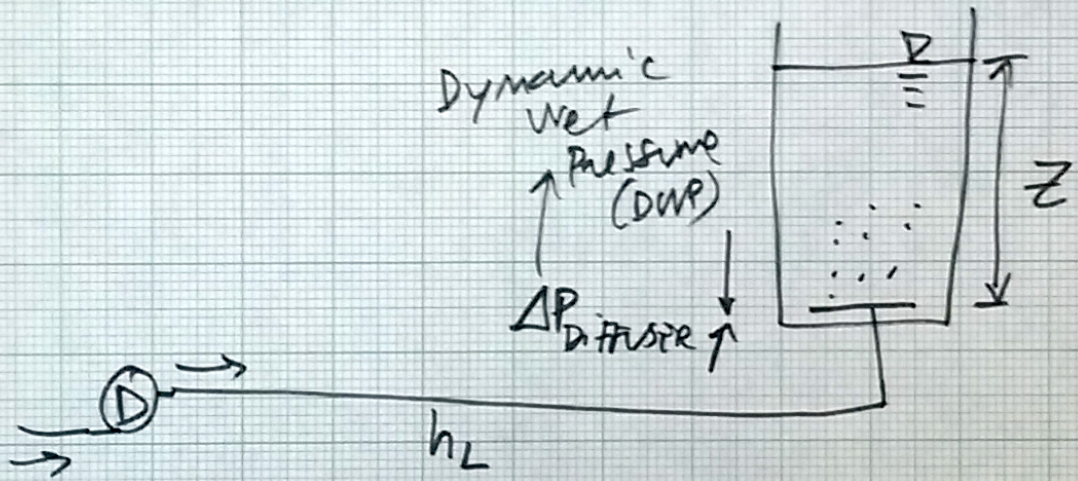 Dynamic
Wet
Pressure
(DWP)
Z
ΔP DIFFUSER
D
h_L